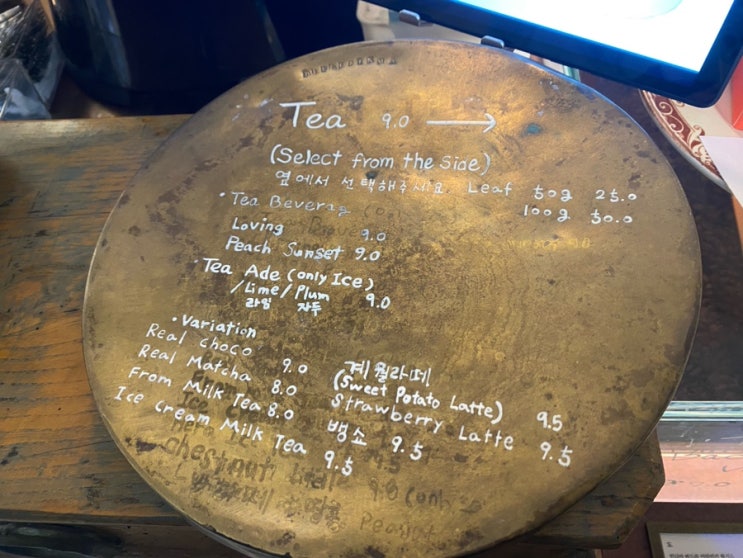 Tea 9.0 →
(Select from the side)
옆에서 선택해주세요 Leaf 50g 25.0
100g 50.0
· Tea Beverag
Loving 9.0
Peach Sunset 9.0
· Tea Ade (only Ice)
/Lime/Plum 9.0
라임 자두
· Variation
Real choco 9.0
Real Matcha 8.0
From Milk Tea 8.0
Ice cream Milk Tea 9.5
(Sweet Potato Latte) 9.5
Strawberry Latte 9.5
뱅쇼 9.5
chestnut